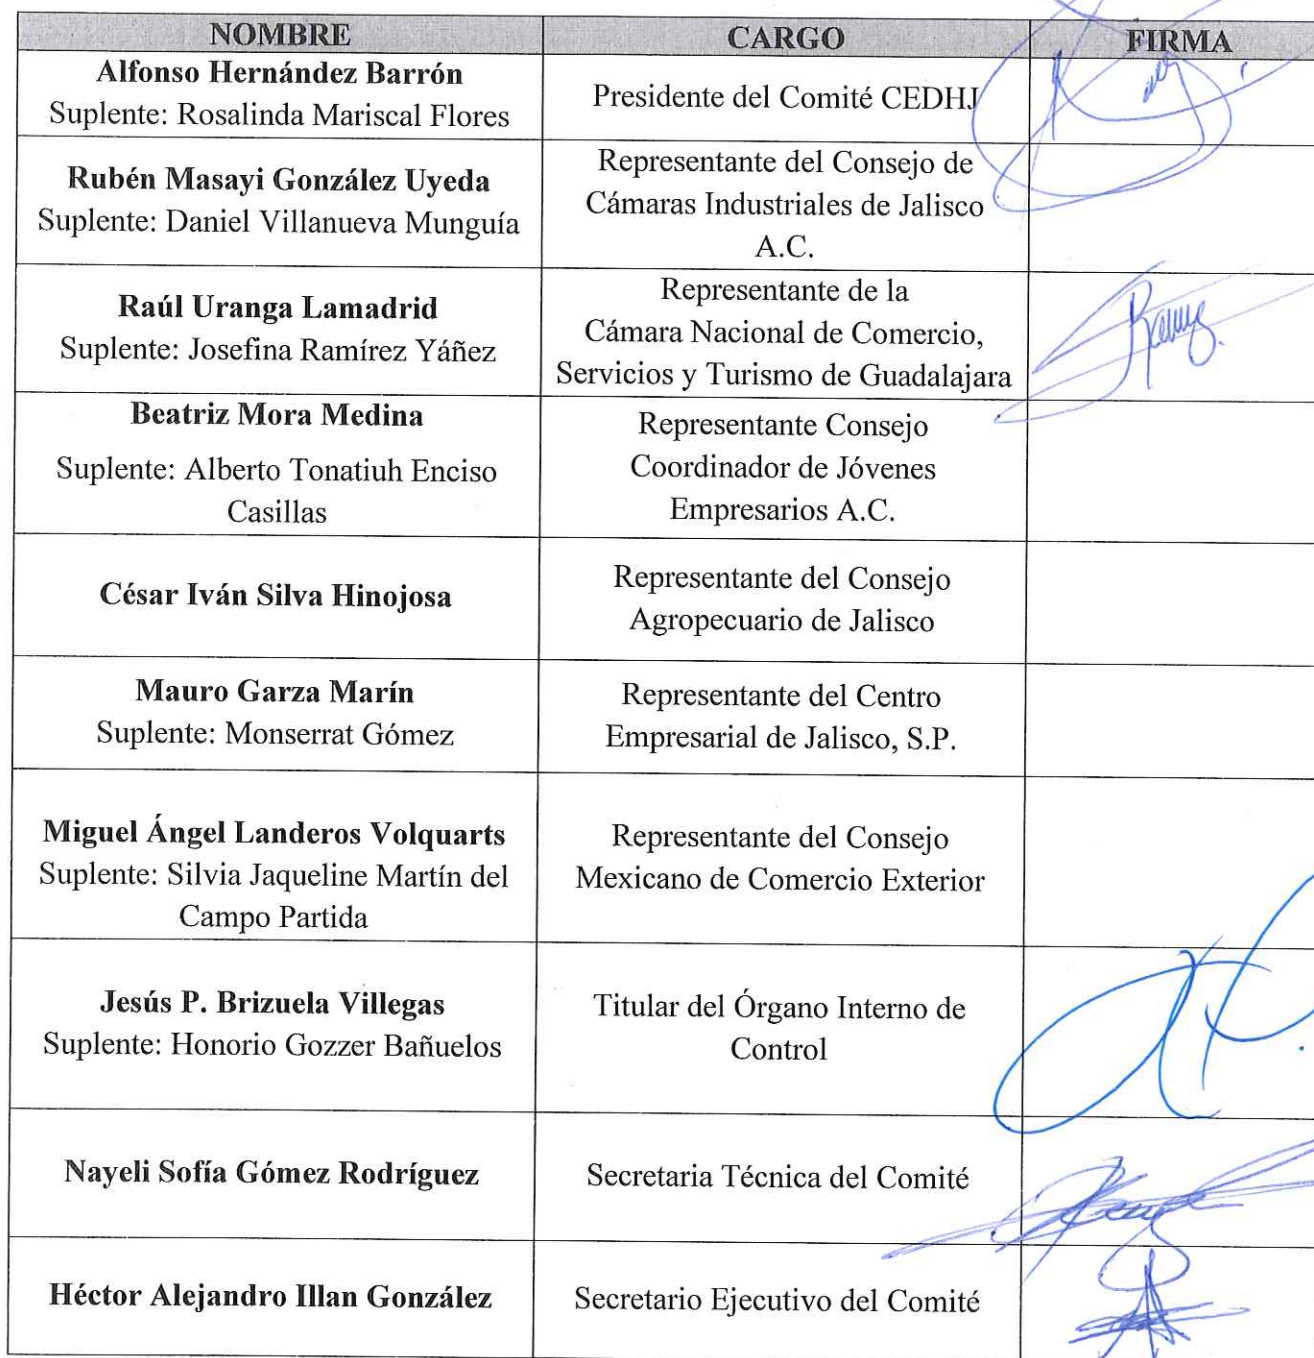 NOMBRE CARGO FIRMA
Alfonso Hernández Barrón
Suplente: Rosalinda Mariscal Flores
Presidente del Comité CEDHJ
Rubén Masayi González Uyeda
Suplente: Daniel Villanueva Munguía
Representante del Consejo de
Cámaras Industriales de Jalisco
A.C.
Raúl Uranga Lamadrid
Suplente: Josefina Ramírez Yáñez
Representante de la
Cámara Nacional de Comercio,
Servicios y Turismo de Guadalajara
Beatriz Mora Medina
Suplente: Alberto Tonatiuh Enciso
Casillas
Representante Consejo
Coordinador de Jóvenes
Empresarios A.C.
César Iván Silva Hinojosa
Representante del Consejo
Agropecuario de Jalisco
Mauro Garza Marín
Suplente: Monserrat Gómez
Representante del Centro
Empresarial de Jalisco, S.P.
Miguel Ángel Landeros Volquarts
Suplente: Silvia Jaqueline Martín del
Campo Partida
Representante del Consejo
Mexicano de Comercio Exterior
Jesús P. Brizuela Villegas
Suplente: Honorio Gozzer Bañuelos
Titular del Órgano Interno de
Control
Nayeli Sofía Gómez Rodríguez
Secretaria Técnica del Comité
Héctor Alejandro Illan González
Secretario Ejecutivo del Comité